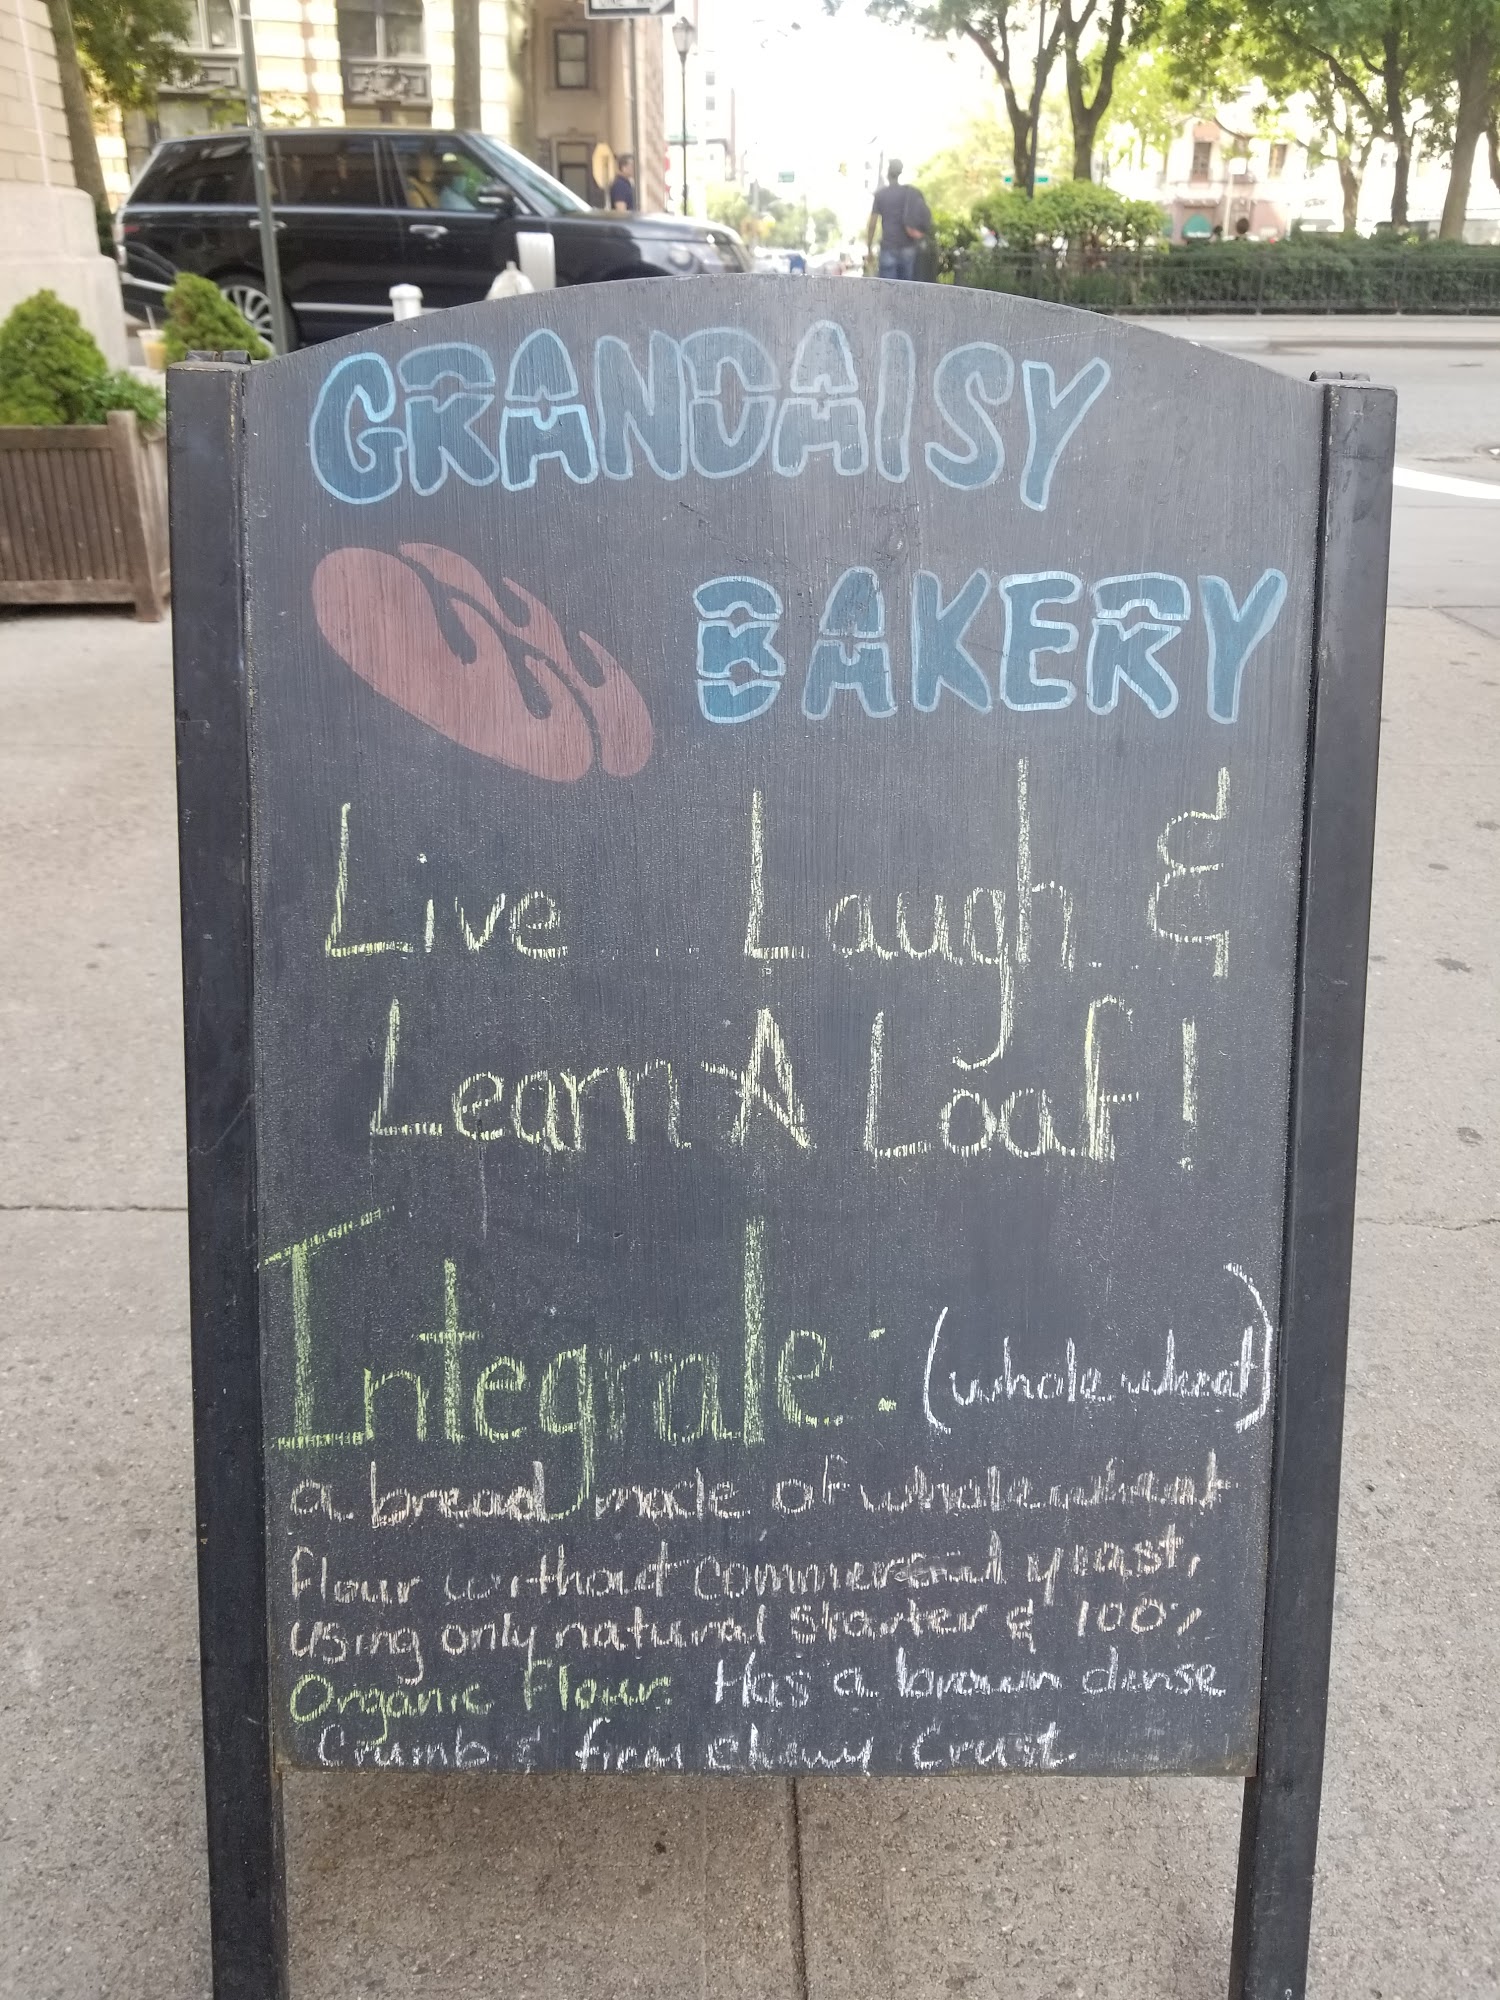 GRANDAISY
BAKERY
Live Laugh &
Learn A Loaf!
Integrale: (whole wheat)
a bread made of whole wheat
flour without commercial yeast,
using only natural starter & 100%
Organic Flour. Has a brown dense
Crumb & firm chewy Crust